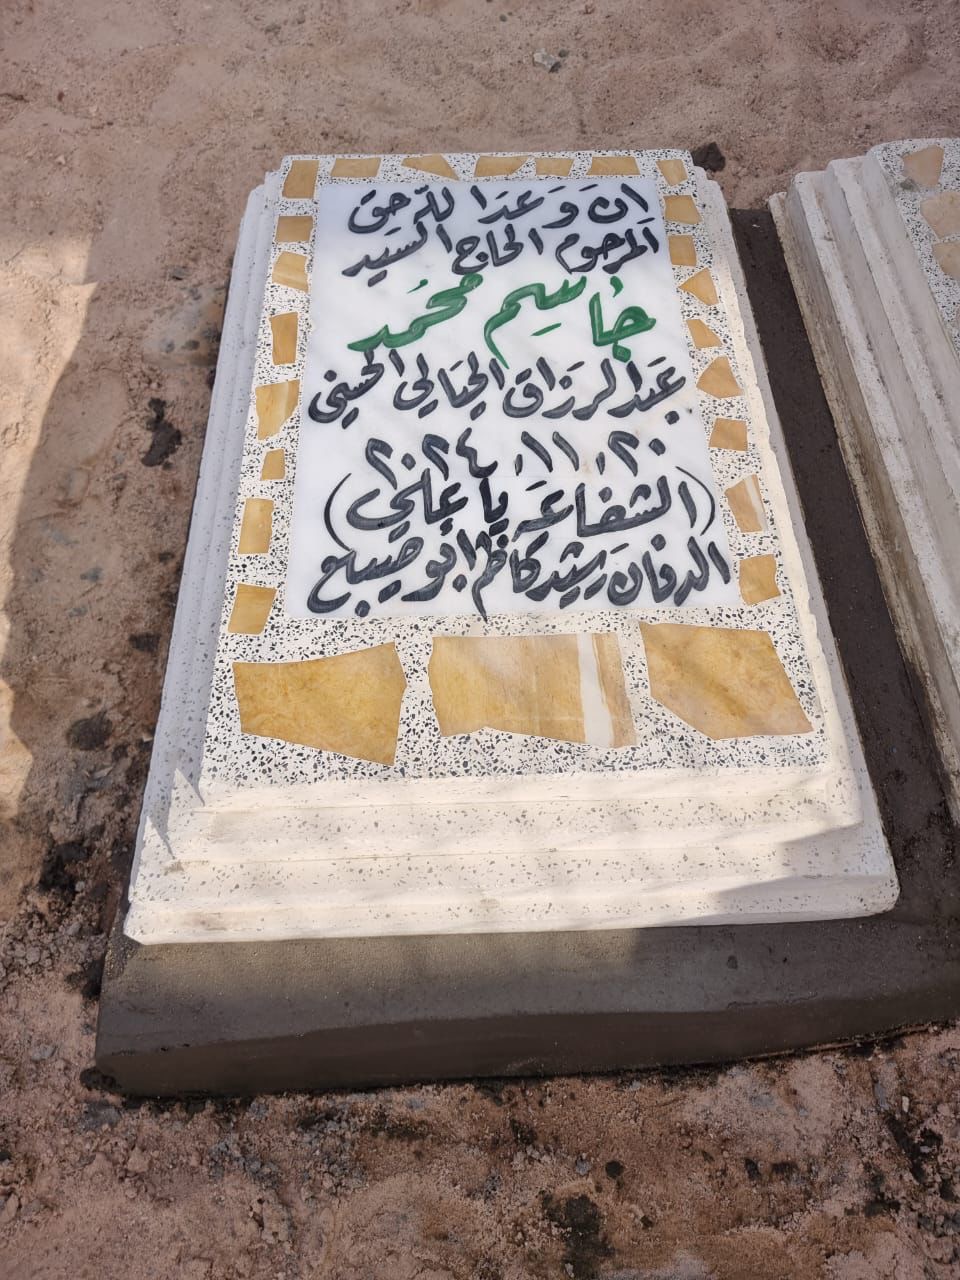 ان وعد الله حق
المرحوم الحاج السيد
جاسم محمد
عبد الرزاق الحيالي الحسني
٢٠٢٤.١١.٢٠
(الشفاعة يا علي)
الدفان رشيد كاظم ابو صيبع